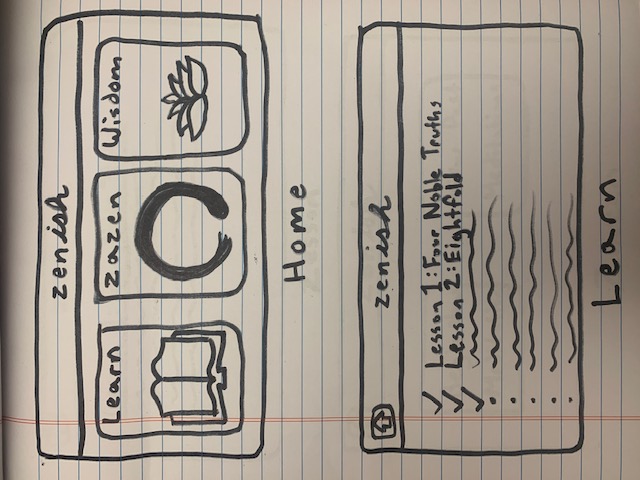 zenish
Learn
zazen
Wisdom
Home
zenish
Lesson 1: Four Noble Truths
Lesson 2: Eightfold
Learn